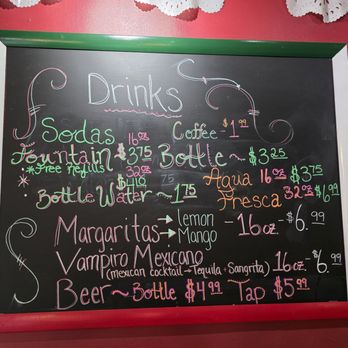 Drinks
Sodas 16oz Coffee ~ $1.99
Fountain ~ $3.75 Bottle ~ $3.25
*Free Refills 32oz Agua 16oz $3.75
Bottle Water ~ 1.75 Fresca 32oz $6.99
Margaritas → lemon - 16oz - $6.99
→ Mango
Vampiro Mexicano 16oz - $6.99
(mexican cocktail → Tequila + Sangrita)
Beer ~ Bottle $4.99 Tap $5.99